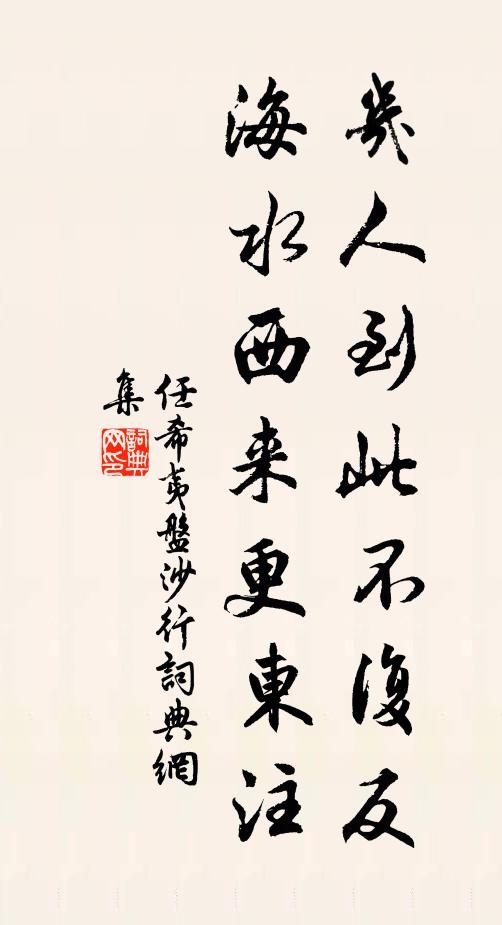 幾人到此不復反
海水西来更東注
任希夷盤沙行詞典網
集
詞典
网印